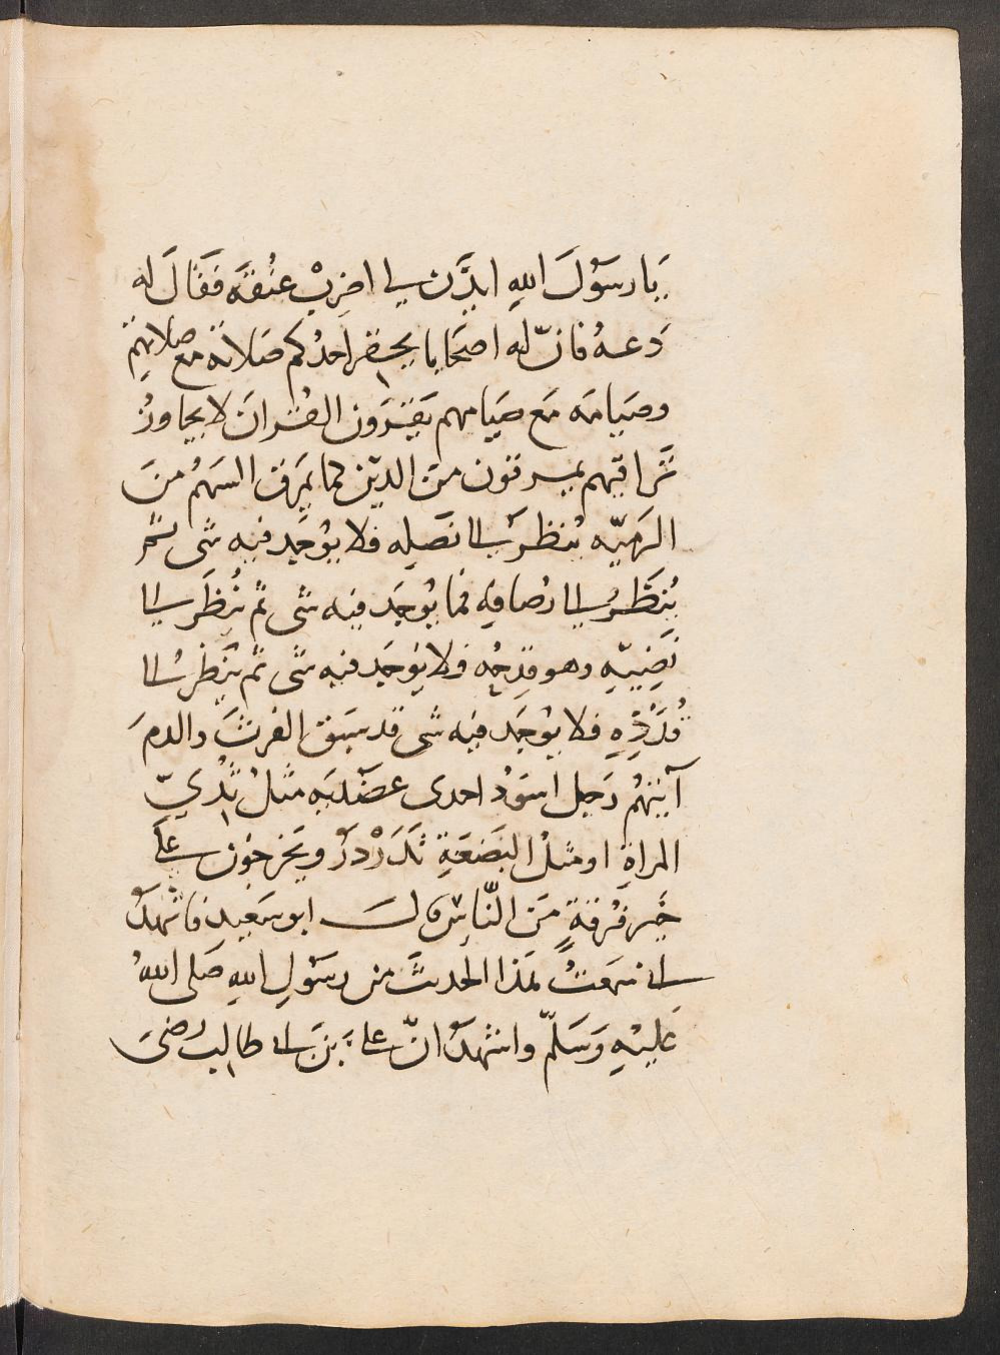 يَا رسَوُلَ اللهِ ايذَن لي اضرِبْ عنُقَه فقَالَ له
دَعهُ فانّ له اصحَابا يحقرِ احدُكم صَلاته مع صلاتِهم
وصيَامَه مَع صيَامهم يَقرَؤن القُرانَ لا يجاوزُ
تَراقيهم يمرقون منَ الدين كما يَمرق السَهمُ منَ
الرَميّه يُنظر الى نصَلِه فلا يوُجَد فيه شى ثم
يُنظَرُ الى رُصافِه فما يُوجَد فيه شى ثم يُنظَر الى
نَضِيّهِ وهو قِدحُه فلا يُوجَد فيه شى ثم يُنظرُ الى
قُذَذِهِ فلا يوُجَد فيه شى قد سَبَق الفرثَ والدمَ
آيتهُم رَجل اسَودُ احدى عضَديَه مثلُ ثدْيّ
المراةِ او مثلُ البَضعَةِ تَدَردْرُ ويَخرجُون على
خَير فُرقةٍ منَ النّاسِ قال ابو سَعِيد فاشهدُ
اني سَمعتُ هَذا الحديثَ من رسَوُلِ اللهِ صَلى اللهُ
عَليْهِ وَسَلّم واشهدُ انّ على بنَ ابى طالب رضىَ